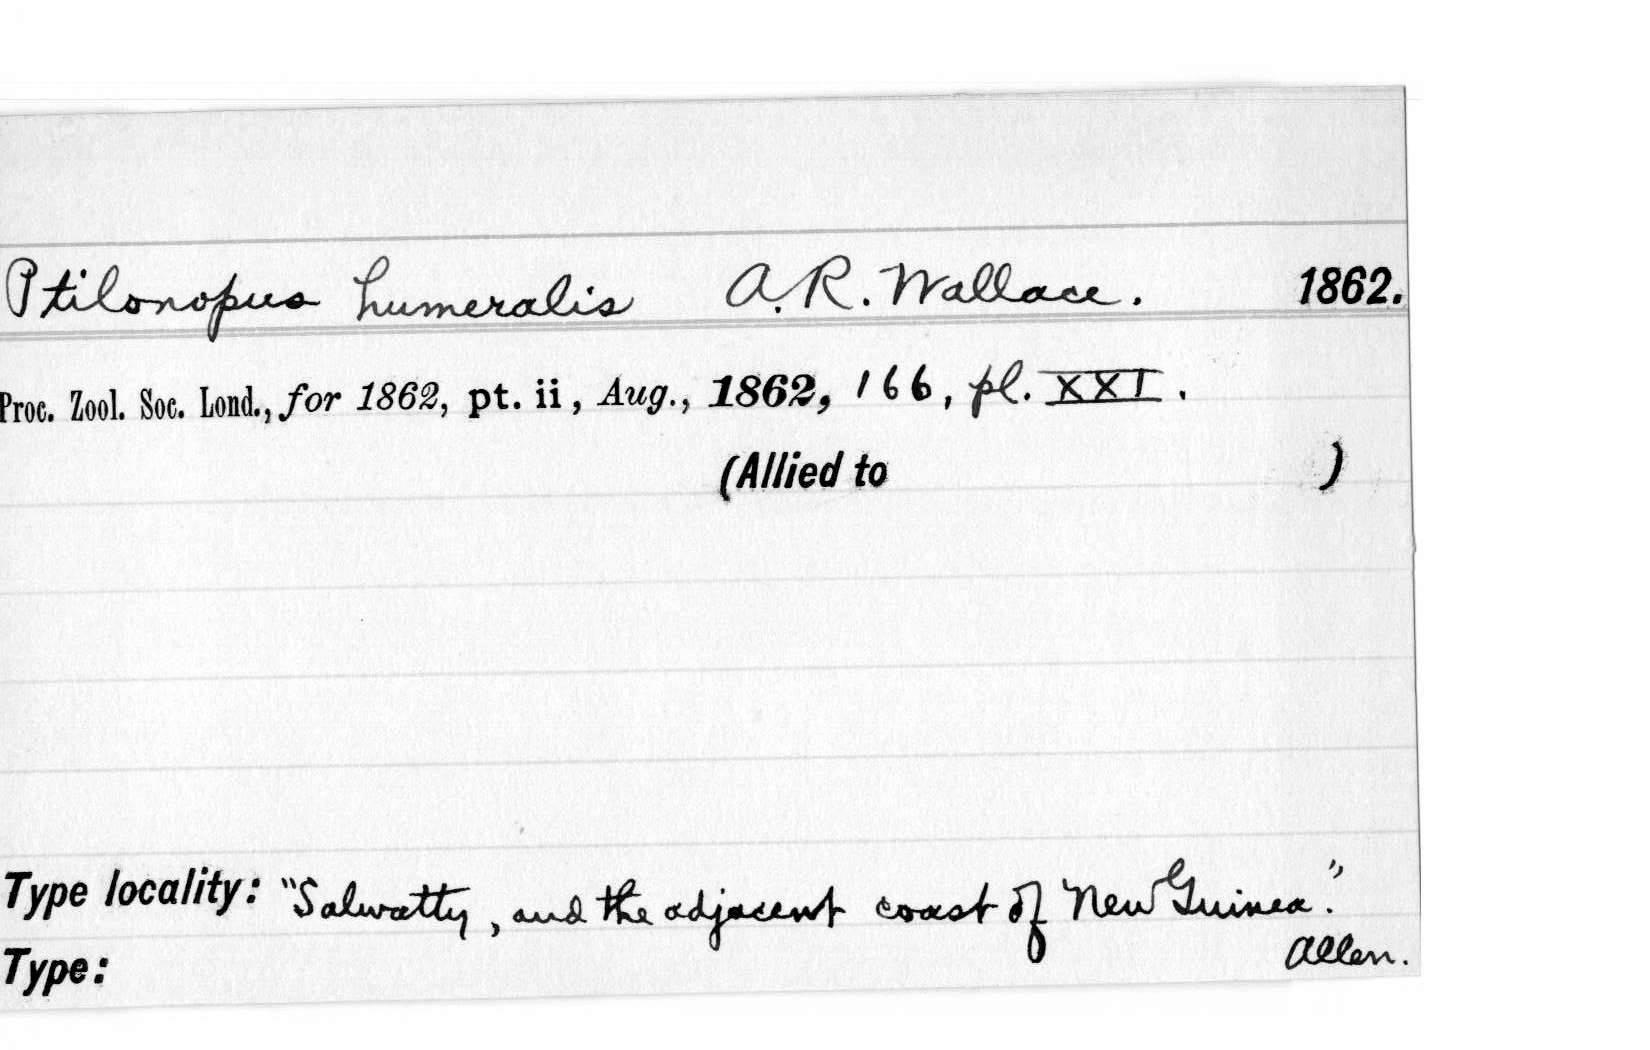 Ptilonopus humeralis A.R. Wallace. 1862.
Proc. Zool. Soc. Lond., for 1862, pt. ii, Aug., 1862, 166, pl. XXI.
(Allied to )
Type locality: "Salwatty, and the adjacent coast of New Guinea."
Type: Allen.